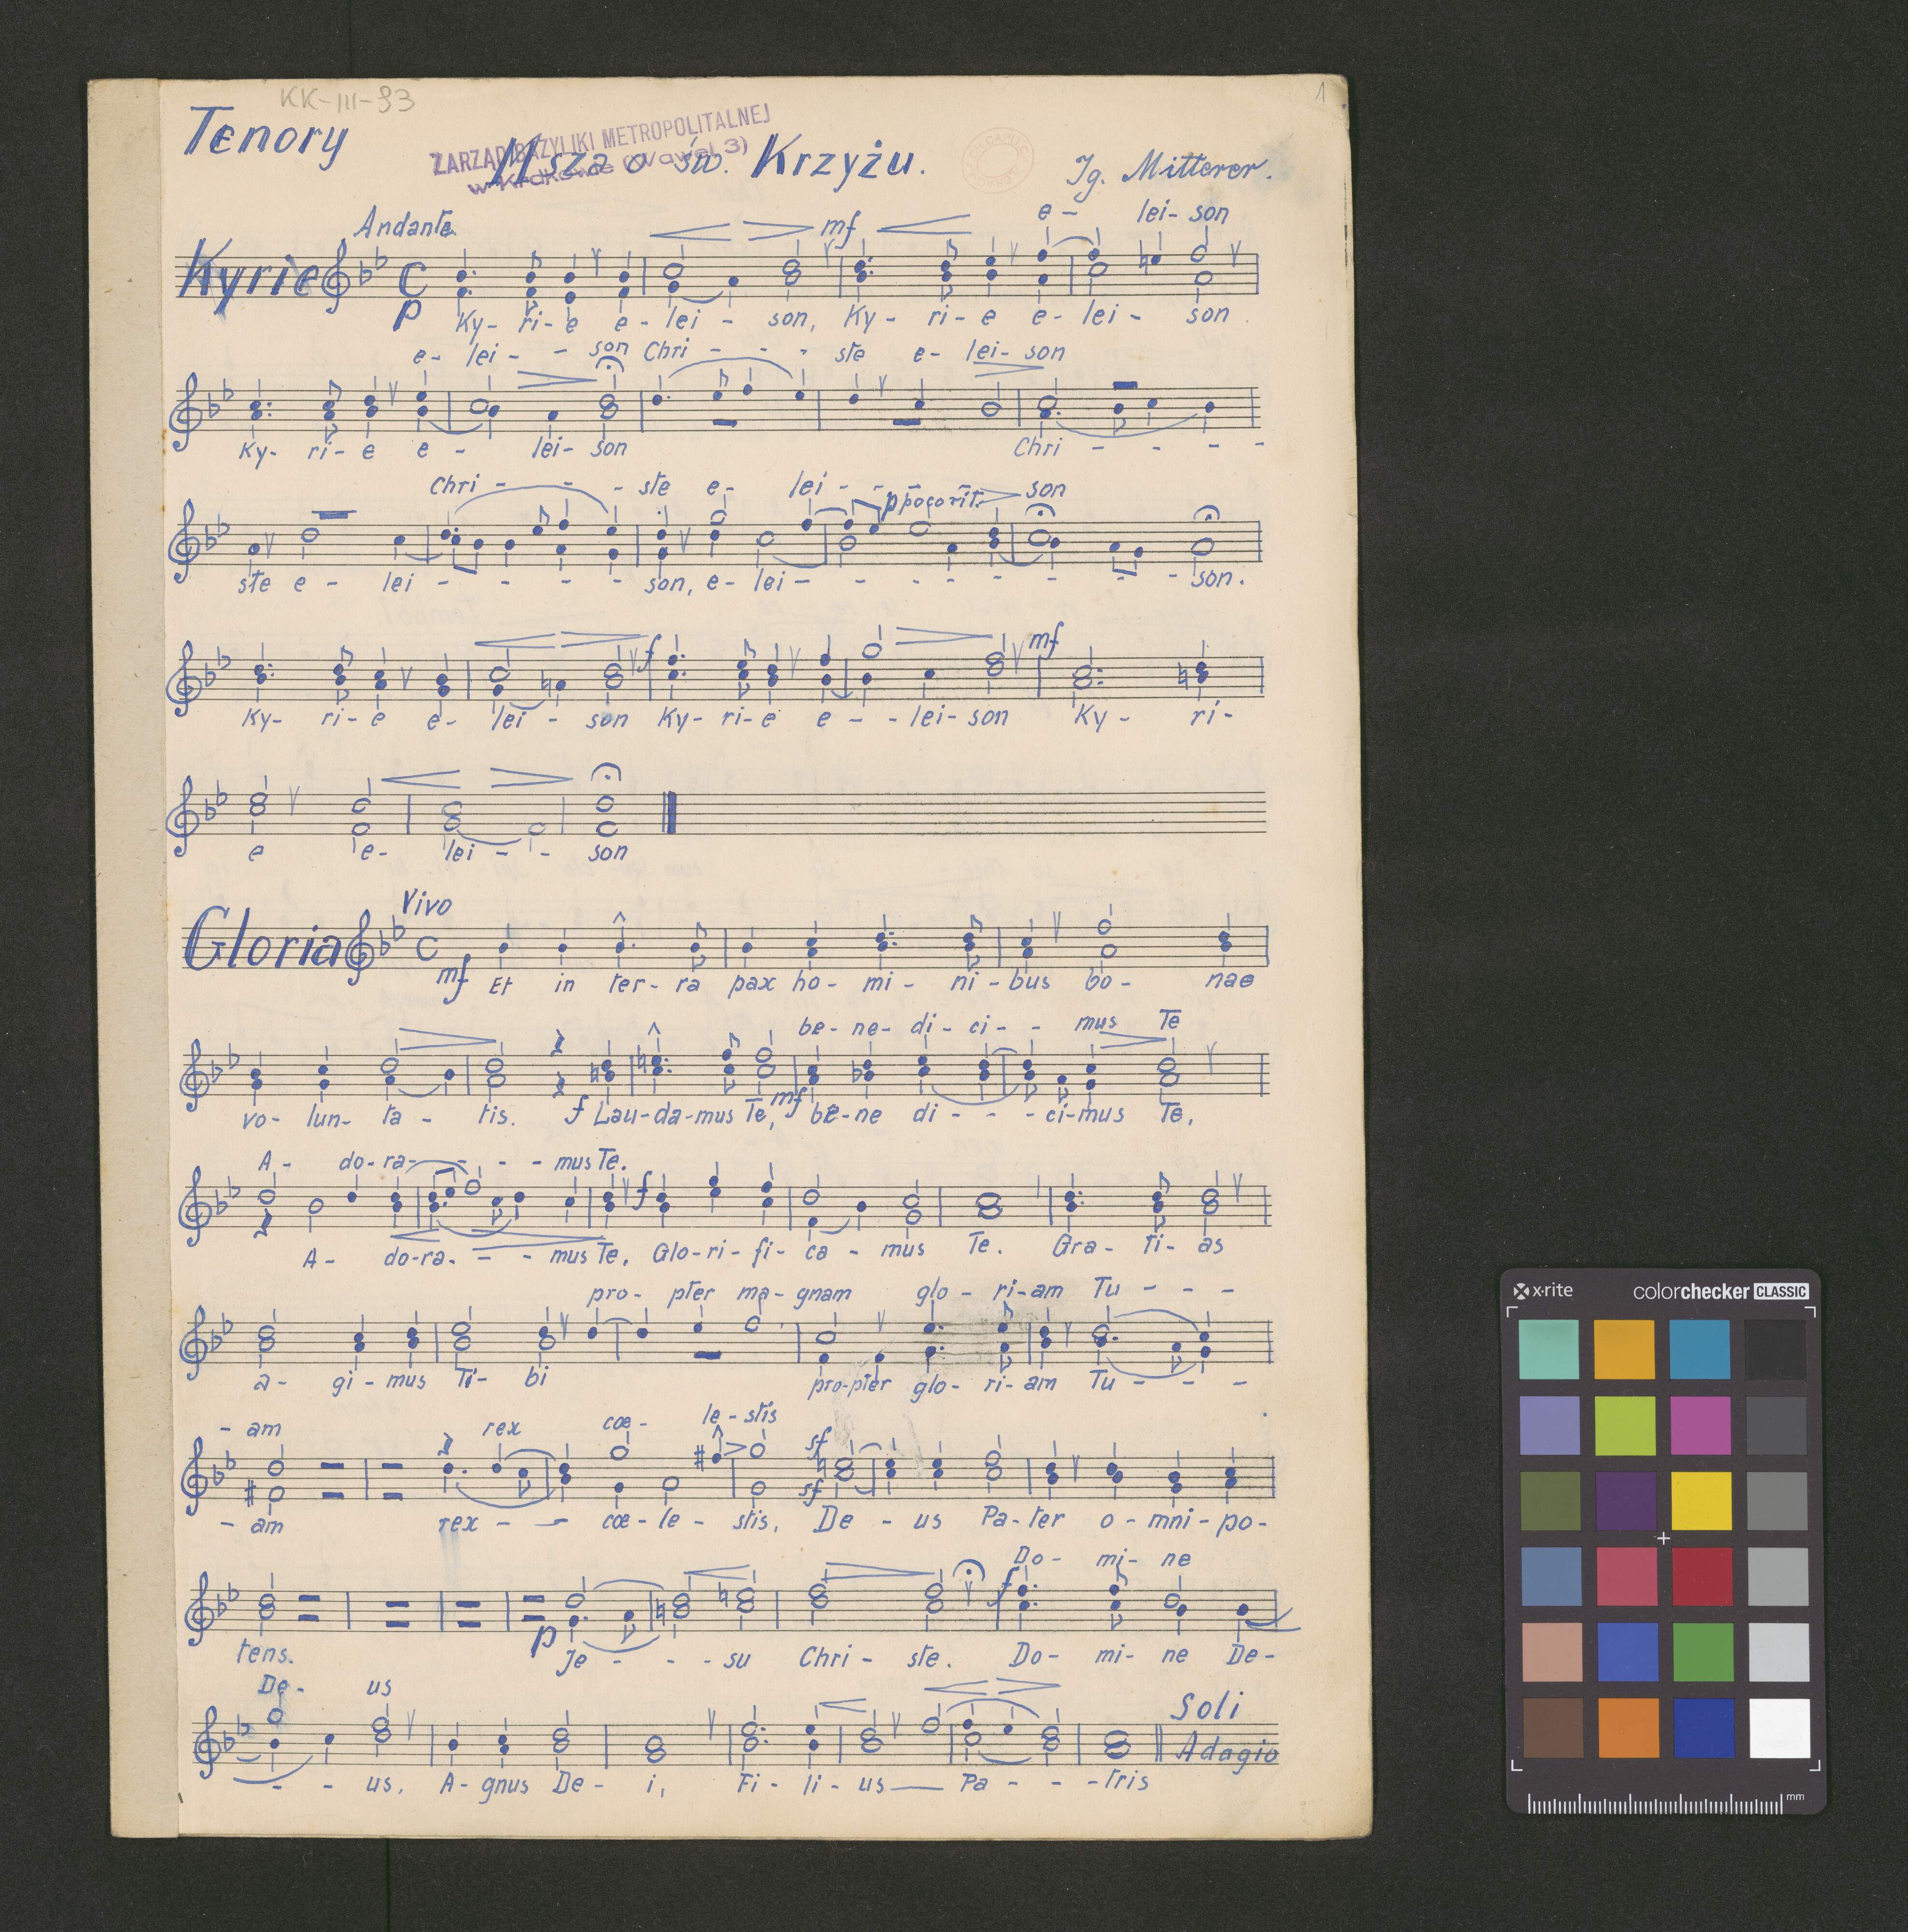 KK-III-93
1
Tenory
ZARZĄD BAZYLIKI METROPOLITALNEJ
w Krakowie (Wawel 3)
Msza o św. Krzyżu.
Ig. Mitterer.
Andante.
mf
e - lei - son
Kyrie
C
p
Ky - ri - e e - lei - son, Ky - ri - e e - lei - son.
e - lei - - son Chri - - - ste e - lei - son
Ky - ri - e e - lei - son Chri - - - -
Chri - - - ste e - lei - - - son
p poco rit.
ste e - lei - - - - son, e - lei - - - - - - - son.
f
mf
Ky - ri - e e - lei - son Ky - ri - e e - - lei - son Ky - ri -
e e - lei - - son
Vivo
Gloria
C
mf
Et in ter - ra pax ho - mi - ni - bus bo - nae
be - ne - di - ci - - mus Te
vo - lun - ta - tis. f Lau - da - mus Te, mf be - ne di - - - ci - mus Te,
A - do - ra - - - - mus Te.
f
A - do - ra - - - mus Te. Glo - ri - fi - ca - mus Te. Gra - ti - as
pro - pter ma - gnam glo - ri - am Tu - - -
a - gi - mus Ti - bi pro - pter glo - ri - am Tu - - -
- am rex cœ - le - stis
sf
sf
- am rex - - cœ - le - stis, De - us Pa - ter o - mni - po -
Do - mi - ne
f
p
tens. Je - - - su Chri - ste. Do - mi - ne De -
De - us
Soli
Adagio
- - us, A - gnus De - i, Fi - li - us Pa - - - tris
x·rite
colorchecker CLASSIC
mm